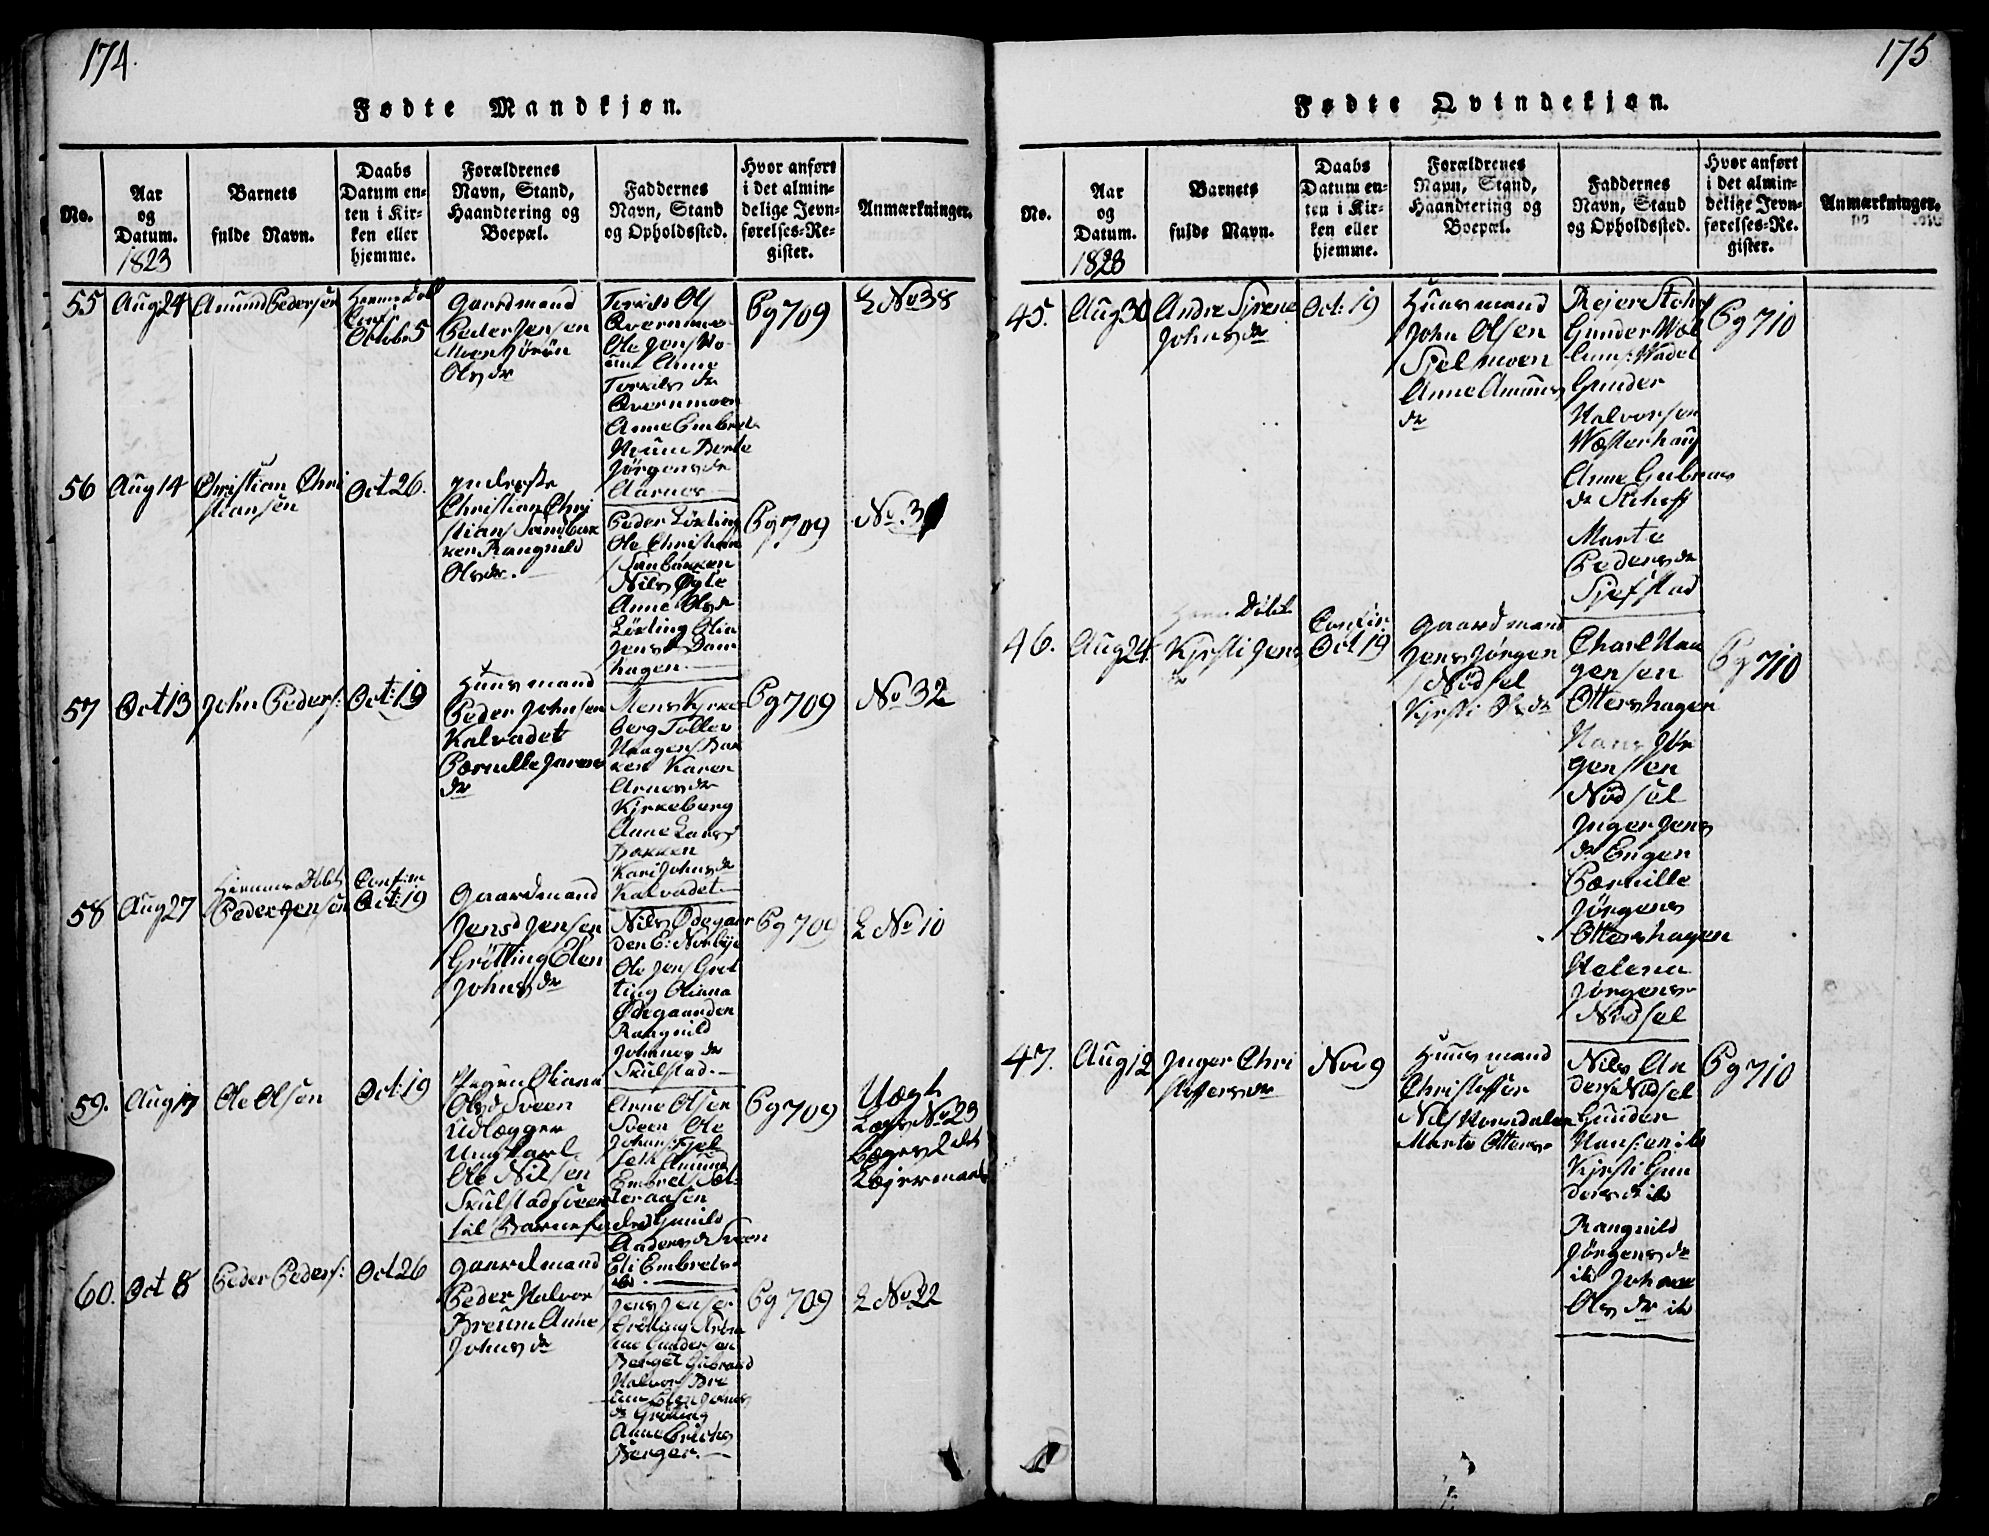 174.
Fødte Mandkjøn.
No.
Aar
og
Datum.
1823
Barnets
fulde Navn.
Daabs
Datum en-
ten i Kir-
ken eller
hjemme.
Forældrenes
Navn, Stand,
Haandtering og
Boepæl.
Faddernes
Navn, Stand
og Opholdssted.
Hvor anført
i det almin-
delige Jevn-
førelses-Re-
gister.
Anmærkninger.
55
Aug 24
Amund Pedersen
Octobr 5
Gaardmand
Peder Jensen
Olsdr
Ole Jens
Anne
Torkilsdr
Qvernmoen
Anne Embret
Jørgensdr
Aarnes
Pg 709
L No 38
56
Aug 14
Christian Chri
stiansen
Oct 26.
Christian Chri
stians Sandbak
ken Rangnild
Olsdr.
Peder Løvling
Ole Christians
Sanbakken
Nils Øgle
Anne Olsdr
Løvling Olia
Jensd Dam
hagen.
Pg 709
No. 3
57
Oct 13
John Peders:
Oct: 19
Huusmand
Peder Johnsen
Kalvadet
Pernille
dr
Mens Kjrke
berg Tollev
Haagens Bak
ken Karen
Arnesdr
Kjrkeberg
Anne Lars
Bakken
Kari Johnsdr
Kalvadet
Pg 709
No 32
58
Aug 27
Hiemme Døbt
Peder Jensen
Confirm
Oct: 19
Gaardmand
Jens Jensen
Grøtting Elen
Johnsdr
Nils Ødegaar
den E: Norbye
Ole Jens Grøt
ting Oliana
Ødegaarden
Rangnild
Johnnesdr
Skulstad.
Pg 709
L No 10
59.
Aug 17
Ole Olsen
Oct: 19
Pigen Oliana
Olsd Sveen
Udlægger
Ungkarl
Ole Nilsen
Skulstadsveen
til Barnefader
Arne Olsen
Sveen Ole
Johans
Amund
Embrets
teraasen
Gunild
Andersdr Sveen
Eli Embrets
Pg 709
Uægt
No 23
Leiermaal
60.
Oct 8
Peder Peders:
Oct 26
Gaardmand
Peder Halvor
Breum Anne
Johnsdr
Jens Jensen
Grøtting
Gundersen
Berget Gulbrand
Halvors Bre
um Elen Johns
dr Grøtting
Anne Erichs
Berget.
Pg 709
L No 22
175
Fødte Qvindekjøn.
No.
Aar
og
Datum.
1823
Barnets
fulde Navn.
Daabs
Datum en-
ten i Kir-
ken eller
hjemme.
Forældrenes
Navn, Stand,
Haandtering og
Boepæl.
Faddernes
Navn, Stand
og Opholdssted.
Hvor anført
i det almin-
delige Jevn-
førelses-Re-
gister.
Anmærkninger.
45.
Aug 30
Andre Sirene
Johnsdr
Oct: 19
Huusmand
John Olsen
Sjelmoen
Anne Amunds
dr
Gunder
Halvorsen
Westerhaug
Anne Gulbrans
dr
Marte
Pedersdr
Sjefstad
Pg 710
46.
Aug 24
Døbt
Kjrsti Jens
dr
Confir
Oct 19
Gaardmand
Jens Jørgen
s Nødsel
Kjrsti Olsdr
Charl Haa
gensen
Ottershagen
Hans Jør
gensen
Nødsel
Inger Jens
dr Engen
Pernille
Jørgens
Ottershagen
Helena
Jørgens
Nødsel
Pg 710
47.
Aug 12
Inger Chri
stoffersdr
Nov 9
Huusmand
Christoffer
Nils Norsdalen
Marte Otters
Nils An
ders Nødsel
Gunder
Hans:en ib
Kjrsti Gun
dersdr ib
Rangnild
Jørgensdr
ib Johane
Olsdr ib
Pg 710